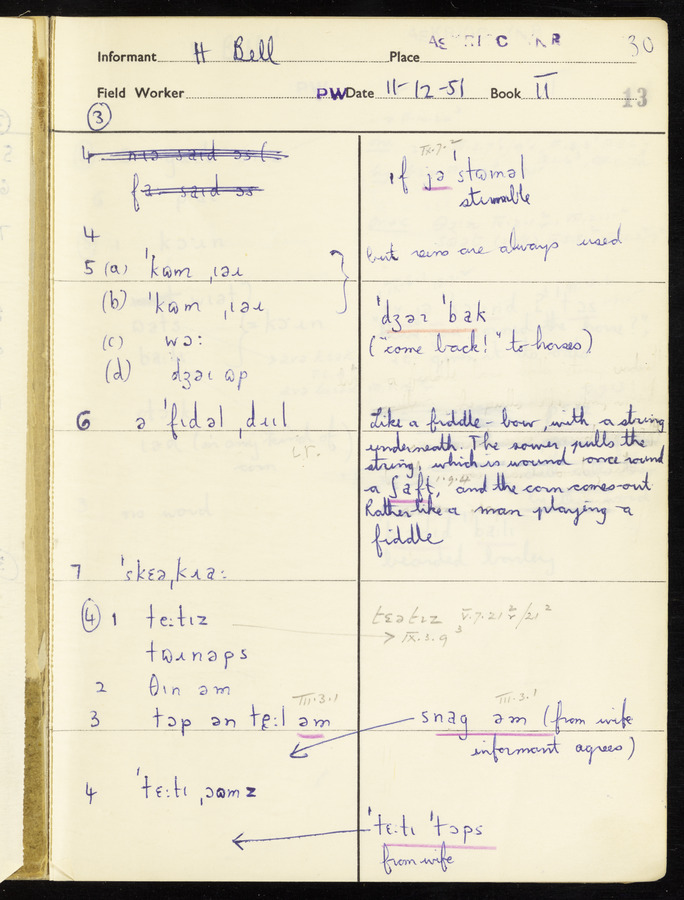 Informant H Bell Place
30
Field Worker PW Date 11-12-51 Book II
13
③
4 nıə said əs (
fə said əs
4
5 (a) ˈkɷm ˌıəɹ
(b) ˈkɷm ˌıəɹ
(c) wɔ:
(d) dʒəɹ ɷp
6 ə ˈfıdəl ˌdɹıl
i.r.
7 ˈskɛəˌkɹɑ:
④ 1 te:tız
tɷɹnəps
2 θın əm
III.3.1
3 tɔp ən tɛ:l əm
4 ˈtɛ:tı ˌɹɷmz
IX.7.2
ıf jə ˈstɷməl
stumble
but reins are always used
ˈdʒəɹ ˈbak
("come back!" to horses)
Like a fiddle-bow, with a string
underneath. The sower pulls the
string, which is wound once round
a ʃaft, and the corn comes out
1.9.4
Rather like a man playing a
fiddle
tɛətız V.7.21²/21²
> IX.3.9³
III.3.1
snag əm (from wife
informant agrees)
ˈtɛ:tı ˈtɔps
from wife